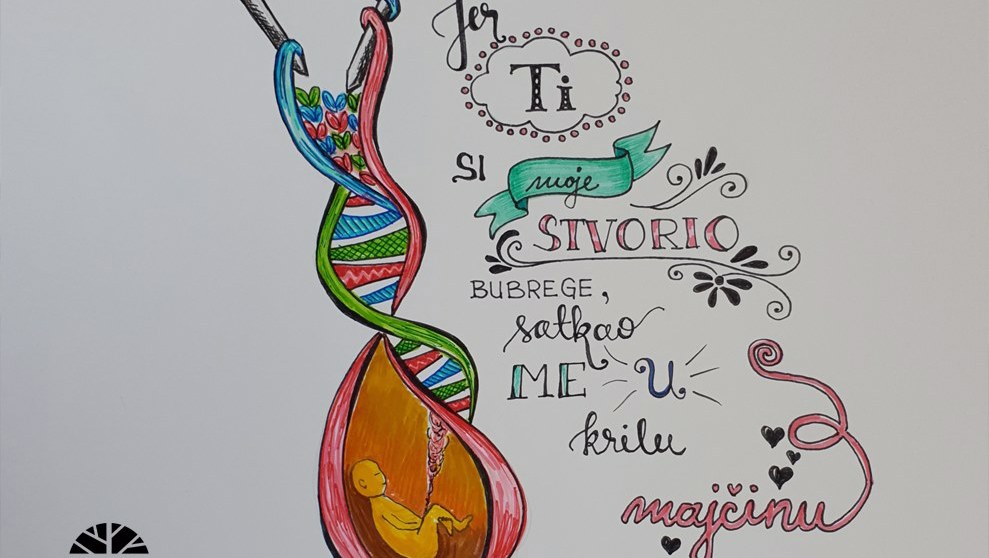 Jer
Ti
SI moje
STVORIO
BUBREGE,
satkao
ME U
krilu
majčinu